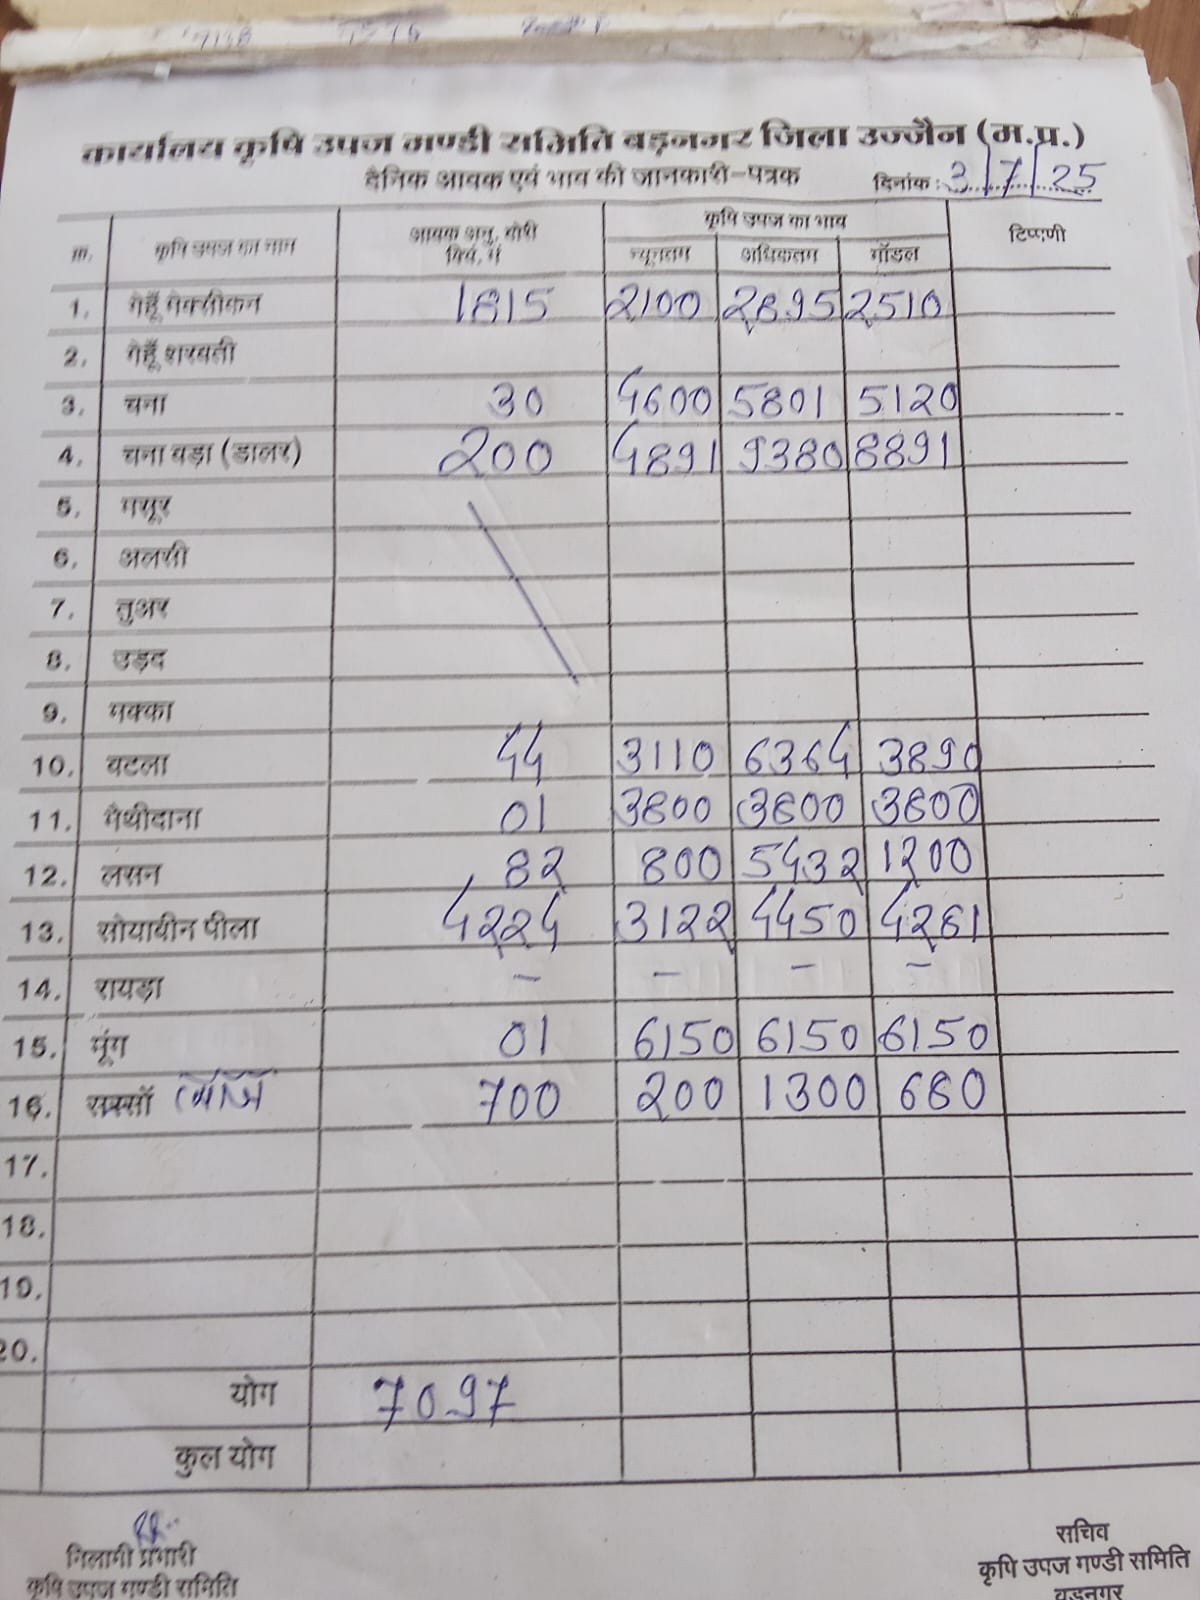 कार्यालय कृषि उपज मण्डी समिति बड़नगर जिला उज्जैन (म.प्र.)
दैनिक आवक एवं भाव की जानकारी-पत्रक दिनांक : 3/7/25
क्र. कृषि उपज का नाम आवक अनु. बोरी क्विं. में कृषि उपज का भाव टिप्पणी
न्यूनतम अधिकतम मॉडल
1. गेहूँ मेक्सीकन 1815 2100 2895 2510
2. गेहूँ शरबती
3. चना 30 4600 5801 5120
4. चना बड़ा (डालर) 200 4891 9380 8891
5. मसूर
6. अलसी
7. तुअर
8. उड़द
9. मक्का
10. बटला 44 3110 6364 3890
11. मैथीदाना 01 3800 3800 3800
12. लसन 82 800 5432 1200
13. सोयाबीन पीला 4224 3122 4450 4261
14. रायड़ा - - - -
15. मूंग 01 6150 6150 6150
16. सरसों 700 200 1300 680
17.
18.
19.
20.
योग 7097
कुल योग
निलामी प्रभारी
कृषि उपज मण्डी समिति
सचिव
कृषि उपज मण्डी समिति
बड़नगर